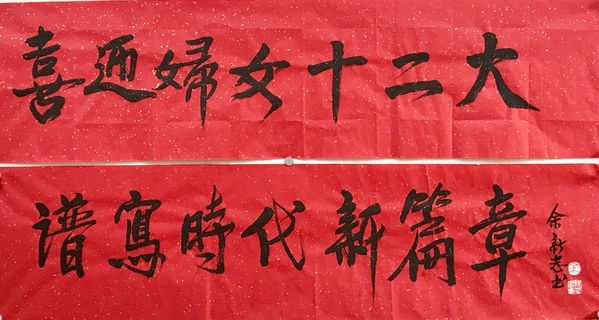 喜迎婦女十二大
譜寫時代新篇章
余新志书